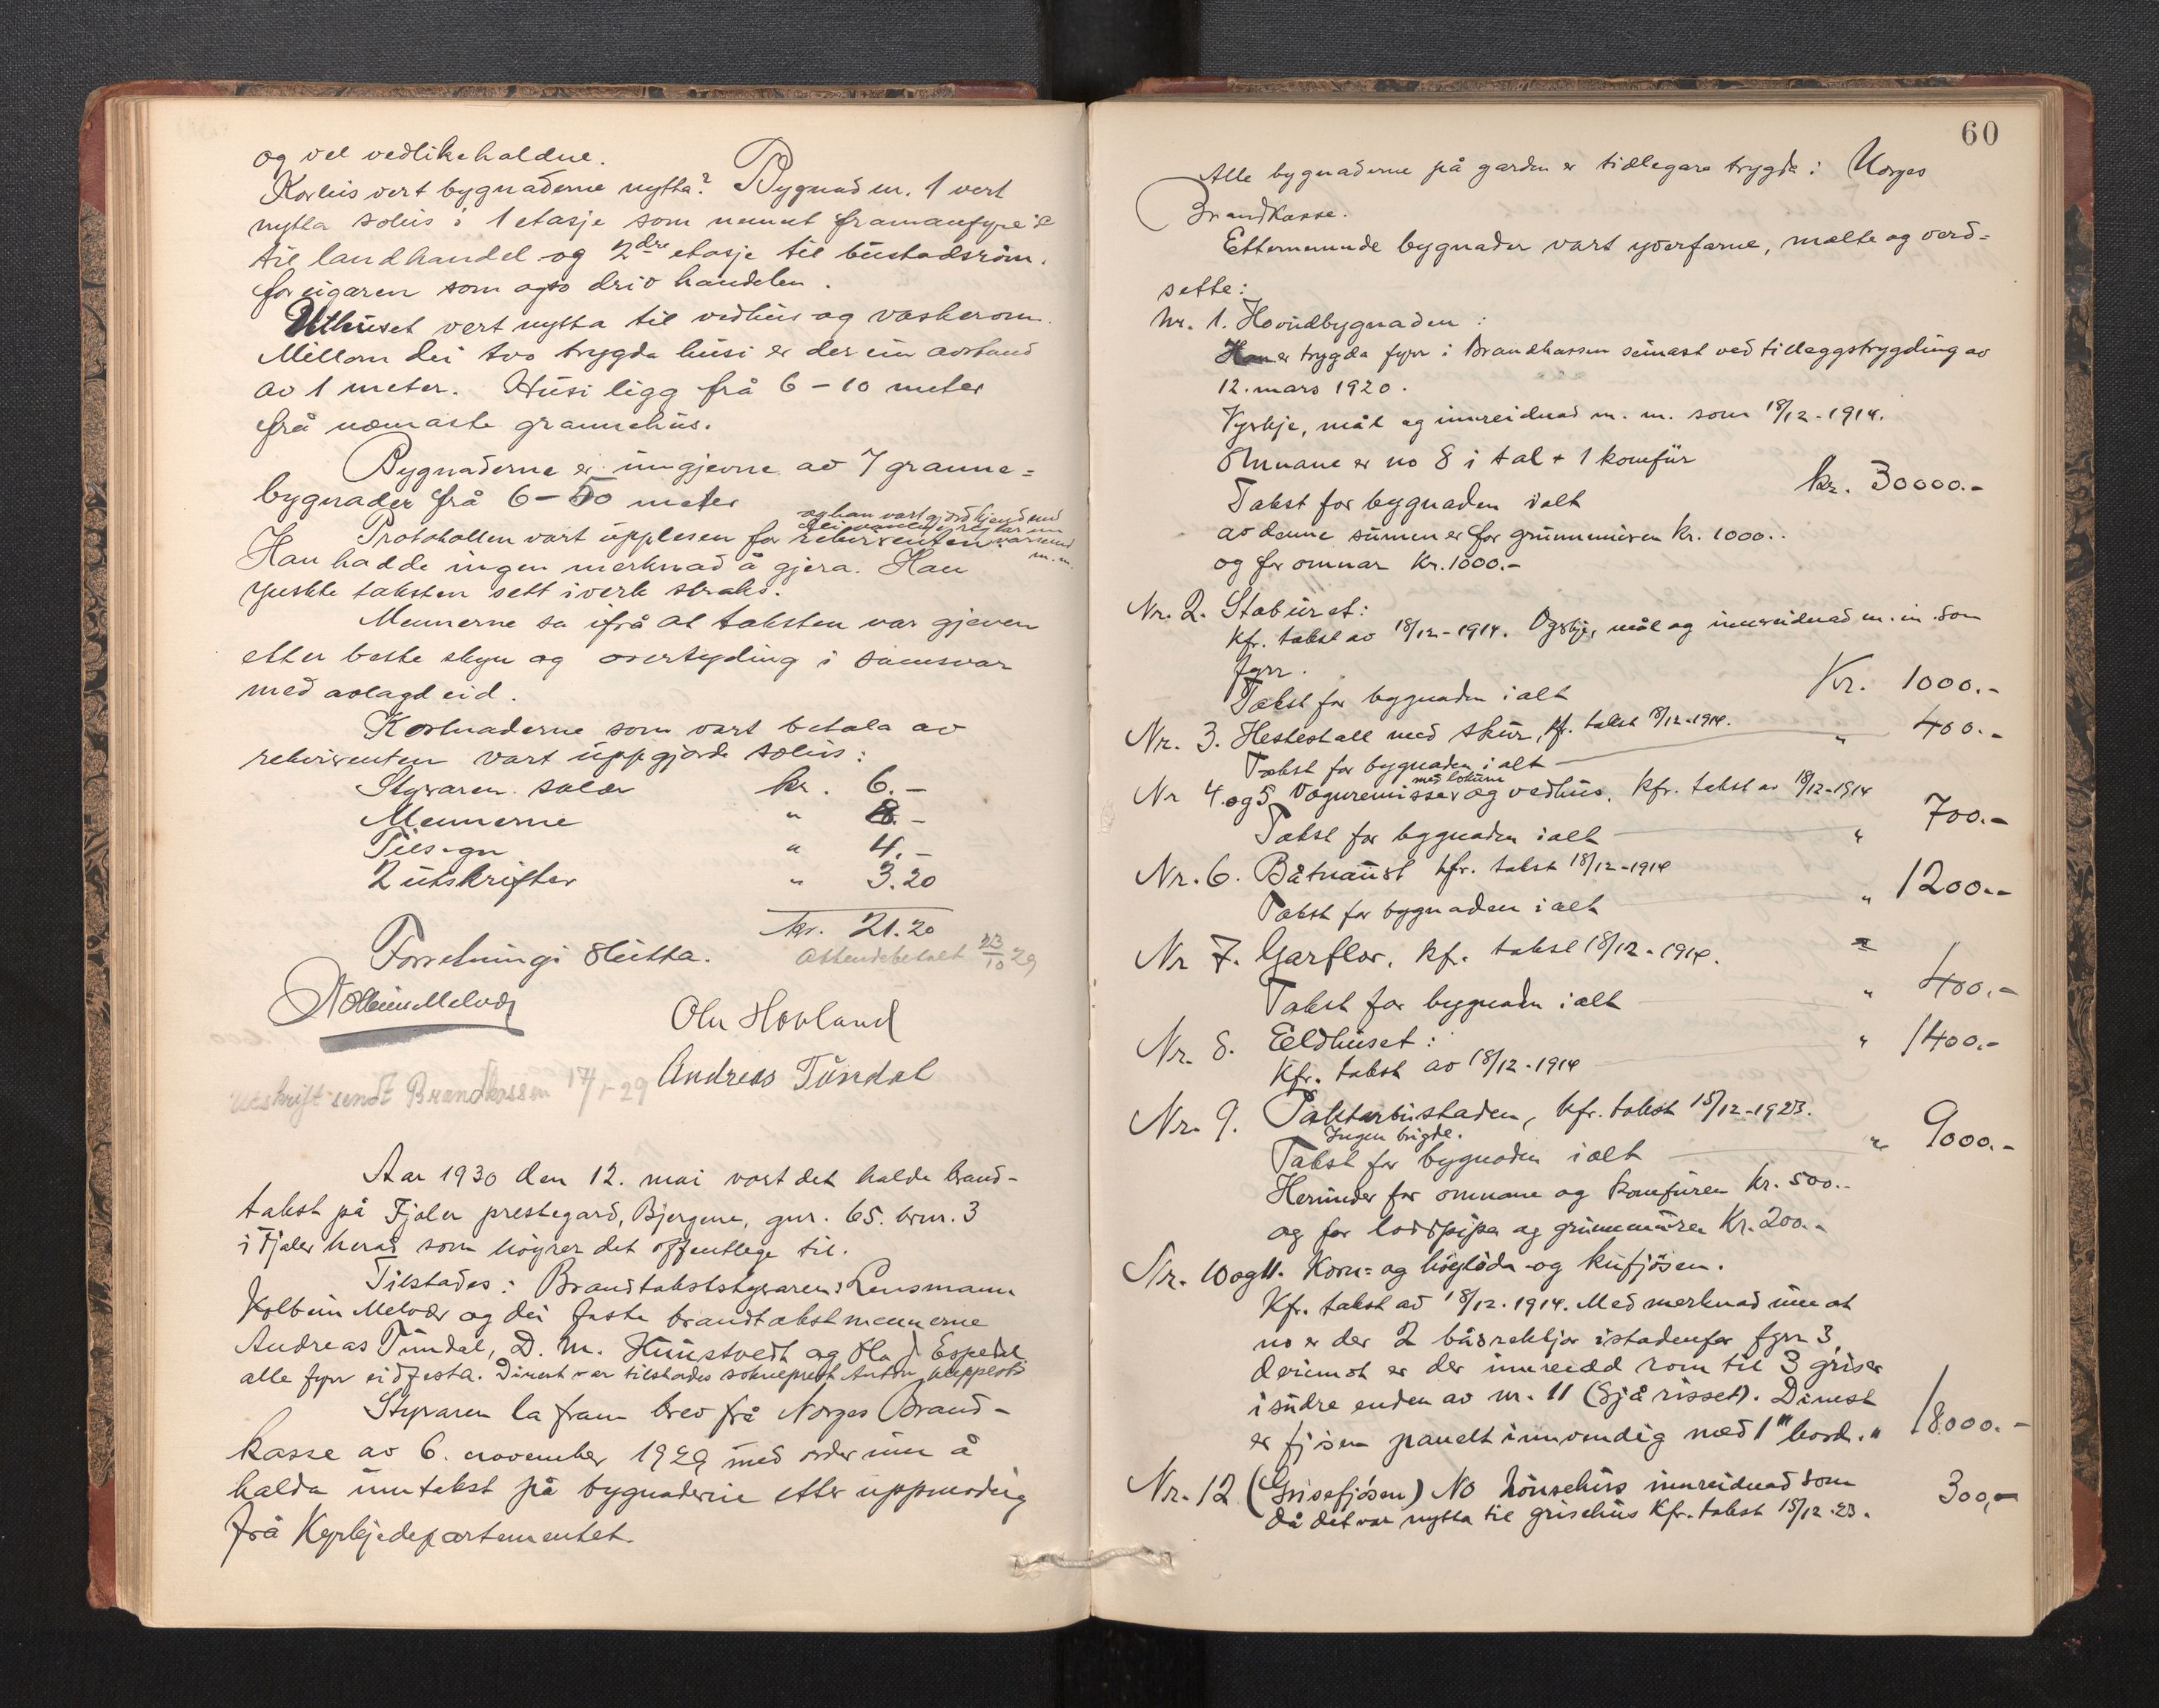 og vel vedlikehaldne.
Korleis vert bygnaderne nytta? Bygnad nr. 1 vert
nytta soleis i 1 etasje som nemnt framanfyre
til landhandel og 2dre etasje til bustadsrom.
for eigaren som ogso driv handelen.
Uthuset vert nytta til vedhus og vaskerom.
Millom dei tvo trygda husi er der ein avstand
av 1 meter. Husi ligg frå 6 – 10 meter
frå næmaste grannehus.
Bygnaderne er umgjevne av 7 granne=
bygnader frå 6 – 50 meter
og han vart gjord kjend med
Protokollen vart upplesen for rekvirenten.
Han hadde ingen merknad å gjera. Han
ynskte taksten sett i verk straks.
Mennerne sa ifrå at taksten var gjeven
etter beste skyn og overtyding i samsvar
med avlagd eid.
Kostnaderne som vart betala av
rekvirenten vart uppgjorde soleis:
Styraren salær kr. 6.–
Mennerne " 8.–
Tilsegn " 4.–
2 utskrifter " 3.20
kr. 21.20
Forretningi slutta. Attendebetalt 23/10 29
Kolbein Melvær
Ole Hovland
Andreas Tundal
Utskrift sendt Brandkassen 17/1-29
Aar 1930 den 12. mai vart det halde brand-
takst på Fjaler prestegard, Bjergene, gnr. 65. brnr. 3
i Fjaler herad som høyrer det offentlege til.
Tilstades: Brandtakststyraren: Lensmann
Kolbein Melvær og dei faste brandtakstmennerne
Andreas Tundal, D. M. Hunstvedt og Ola J. Espedal
alle fyrr eidfesta. Dinest var tilstades sokneprest Anton
Styraren la fram brev frå Norges Brand-
kasse av 6. november 1929 med order um å
halda umtakst på bygnaderne etter uppmoding
frå Kyrkjedepartementet.
60
Alle bygnaderne på garden er tidlegare trygda i Norges
Brandkasse.
Etternemnde bygnader vart yverfarne, mælte og verd=
sette:
Nr. 1. Hovudbygnaden:
Han er trygda fyrr i Brandkassen seinast ved tilleggstrygding av
12. mars 1920.
Yrkje, mål og innreidnad m. m. som 18/12-1914.
Omnane er no 8 i tal + 1 komfür
Takst for bygnaden ialt kr. 30000.–
av denne sumen er for grunnmuren kr. 1000.-
og for omnar Kr. 1000.–
Nr. 2. Staburet:
Kfr. takst av 18/12-1914. Ogskje, mål og innreidnad m. m. som
fyrr.
Takst for bygnaden i alt Kr. 1000.–
Nr. 3. Hestestall med skur, kf. takst 18/12-1914.
Takst for bygnaden i alt " 400.–
med lokum
Nr 4. og 5. Vognremisser og vedhus. Kfr. takst av 18/12-1914
Takst for bygnaden ialt " 700.–
Nr. 6. Båtnaust kfr. takst 18/12-1914
Takst for bygnaden i alt " 1200.–
Nr 7. Garflor. kf. takst 18/12-1914.
Takst for bygnaden ialt " 400.–
Nr. 8. Eldhuset:
Kfr. takst av 18/12-1914 " 1400.–
Nr. 9. Paktarbustaden, kfr. takst 15/12-1923.
Ingen brigde.
Takst for bygnaden i alt " 9000.–
Herunder for omnane og komfuren kr. 500.-
og for loddpipa og grunnmuren Kr. 200.-
Nr. 10 og 11. Korn= og høyløda og kufjøsen.
Kfr. takst av 18/12-1914. Med merknad um at
no er der 2 båsrekkjor istadenfor fyrr 3,
derimot er der innreidd rom til 3 griser
i sudre enden av nr. 11 (Sjå risset). Dinest
er fjøsen panelt innvendig med 1" bord. " 18000.–
Nr. 12 (Grisefjøsen) No hønsehus innreidnad som
då det var nytta til grisehus Kfr. takst 15/12-23. 300,–